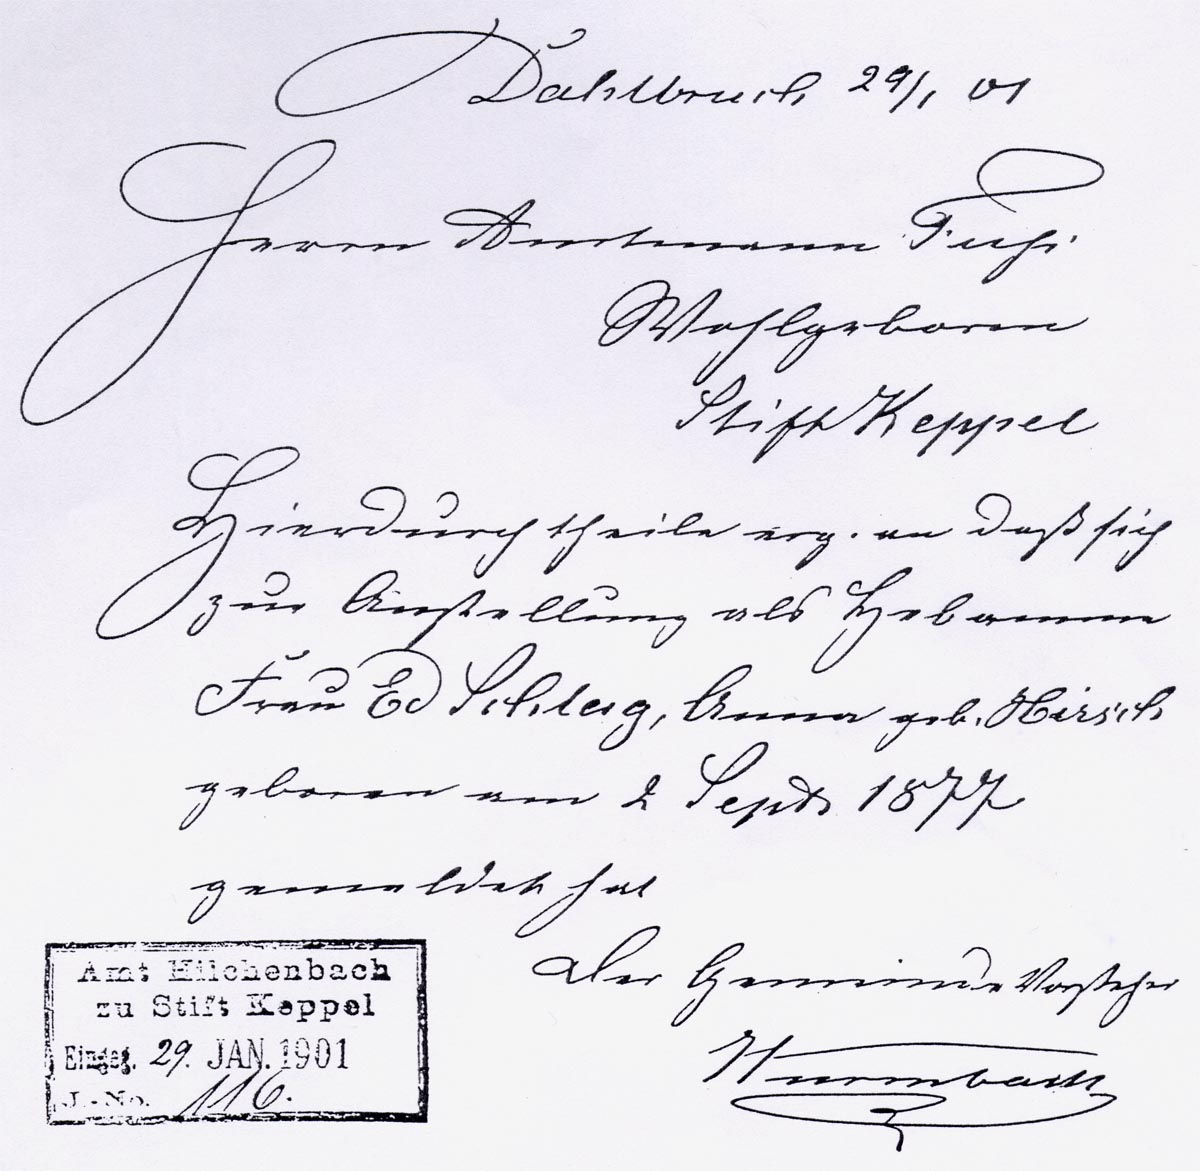 Dahlbruch 29/1 01
Herrn Amtmann Fuchs
Wohlgeboren
Stift Keppel
Hierdurch theile erg. an daß sich
zur Anstellung als Hebamme
Frau Ed Schlag, Anna geb. Hirsch
geboren am 2 Septb 1877
gemeldet hat
Der Gemeinde Vorsteher
Wurmbach
Amt Hilchenbach
zu Stift Keppel
Eingeg. 29. JAN. 1901
J.-No. 116.